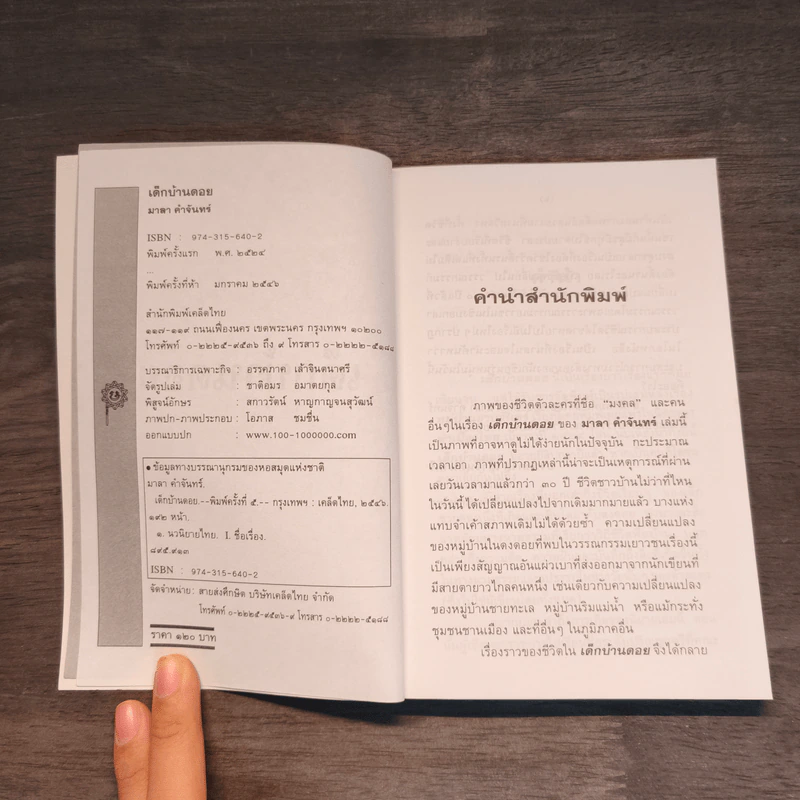 เด็กบ้านดอย
มาลา คำจันทร์
ISBN : 974-315-640-2
พิมพ์ครั้งแรก พ.ศ. ๒๕๒๔
...
พิมพ์ครั้งที่ห้า มกราคม ๒๕๔๖
สำนักพิมพ์เคล็ดไทย
๑๑๗-๑๑๙ ถนนเฟื่องนคร เขตพระนคร กรุงเทพฯ ๑๐๒๐๐
โทรศัพท์ ๐-๒๒๒๕-๙๕๓๖ ถึง ๙ โทรสาร ๐-๒๒๒๒-๕๑๘๘
บรรณาธิการเฉพาะกิจ : อรรคภาค เล้าจินตนาศรี
จัดรูปเล่ม : ชาติอมร อมาตยกุล
พิสูจน์อักษร : สกาวรัตน์ หาญกาญจนสุวัฒน์
ภาพปก-ภาพประกอบ : โอภาส ชมชื่น
ออกแบบปก : www.100-1000000.com
● ข้อมูลทางบรรณานุกรมของหอสมุดแห่งชาติ
มาลา คำจันทร์.
เด็กบ้านดอย.--พิมพ์ครั้งที่ ๕.-- กรุงเทพฯ : เคล็ดไทย, ๒๕๔๖.
๑๙๒ หน้า.
๑. นวนิยายไทย. I. ชื่อเรื่อง.
๘๙๕.๙๑๓
ISBN : 974-315-640-2
จัดจำหน่าย : สายส่งศึกษิต บริษัทเคล็ดไทย จำกัด
โทรศัพท์ ๐-๒๒๒๕-๙๕๓๖-๙ โทรสาร ๐-๒๒๒๒-๕๑๘๘
ราคา ๑๒๐ บาท
คำนำสำนักพิมพ์
ภาพของชีวิตตัวละครที่ชื่อ “มงคล” และคน
อื่นๆในเรื่อง เด็กบ้านดอย ของ มาลา คำจันทร์ เล่มนี้
เป็นภาพที่อาจหาดูไม่ได้ง่ายนักในปัจจุบัน กะประมาณ
เวลาเอา ภาพที่ปรากฏเหล่านี้น่าจะเป็นเหตุการณ์ที่ผ่าน
เลยวันเวลามาแล้วกว่า ๓๐ ปี ชีวิตชาวบ้านไม่ว่าที่ไหน
ในวันนี้ ได้เปลี่ยนแปลงไปจากเดิมมากมายแล้ว บางแห่ง
แทบจำเค้าสภาพเดิมไม่ได้ด้วยซ้ำ ความเปลี่ยนแปลง
ของหมู่บ้านในดงดอยที่พบในวรรณกรรมเยาวชนเรื่องนี้
เป็นเพียงสัญญาณอันแผ่วเบาที่ส่งออกมาจากนักเขียนที่
มีสายตายาวไกลคนหนึ่ง เช่นเดียวกับความเปลี่ยนแปลง
ของหมู่บ้านชายทะเล หมู่บ้านริมแม่น้ำ หรือแม้กระทั่ง
ชุมชนชานเมือง และที่อื่นๆ ในภูมิภาคอื่น
เรื่องราวของชีวิตใน เด็กบ้านดอย จึงได้กลาย